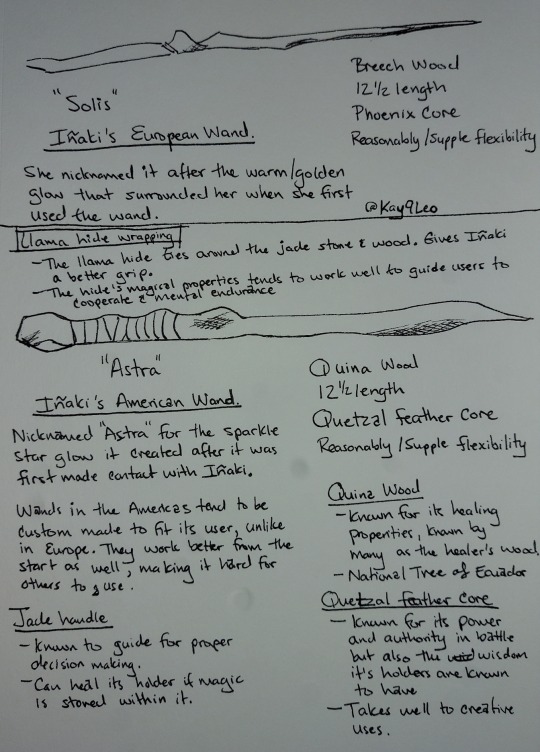 Breech Wood
12 1/2 length
Phoenix Core
Reasonably/Supple flexibility
"Solis"
Iñaki's European Wand.
She nicknamed it after the warm/golden
glow that surrounded her when she first
used the wand.
@Kay9Leo
Llama hide wrapping
- The llama hide ties around the jade stone & wood. Gives Iñaki
a better grip.
- The hide's magical properties tends to work well to guide users to
cooperate & mental endurance
"Astra"
Iñaki's American Wand.
Nicknamed "Astra" for the sparkle
star glow it created after it was
first made contact with Iñaki.
Wands in the Americas tend to be
custom made to fit its user, unlike
in Europe. They work better from the
start as well, making it hard for
others to use.
Jade handle
- Known to guide for proper
decision making.
- Can heal its holder if magic
is stored within it.
Quina Wood
12 1/2 length
Quetzal feather Core
Reasonably/Supple flexibility
Quina Wood
- Known for its healing
properties, known by
many as the healer's wood.
- National Tree of Ecuador
Quetzal feather Core
- Known for its power
and authority in battle
but also the wisdom
it's holders are known
to have
- Takes well to creative
uses.